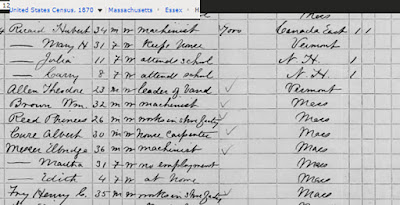 12
United States Census, 1870 ▾ Massachusetts › Essex › H
Mass
Ricard Hubert 34 m w machinist 4000 Canada East 1 1
— Mary H 31 f w Keeps house Vermont
— Julia 11 f w attends school N. H. 1
— Carry 8 f w attends school N. H. 1
Allen Theodore 23 m w leader of band Vermont
Brown Wm. 32 m w machinist Mass
Reed Phineas 26 m w works in shoe facty Mass
Albert 30 m w house carpenter Mass
Elbridge 36 m w machinist Mass
— Martha 31 f w no employment Mass
— Edith 4 f w at home Mass
Fry Henry C. 35 m w works in shoe facty Mass